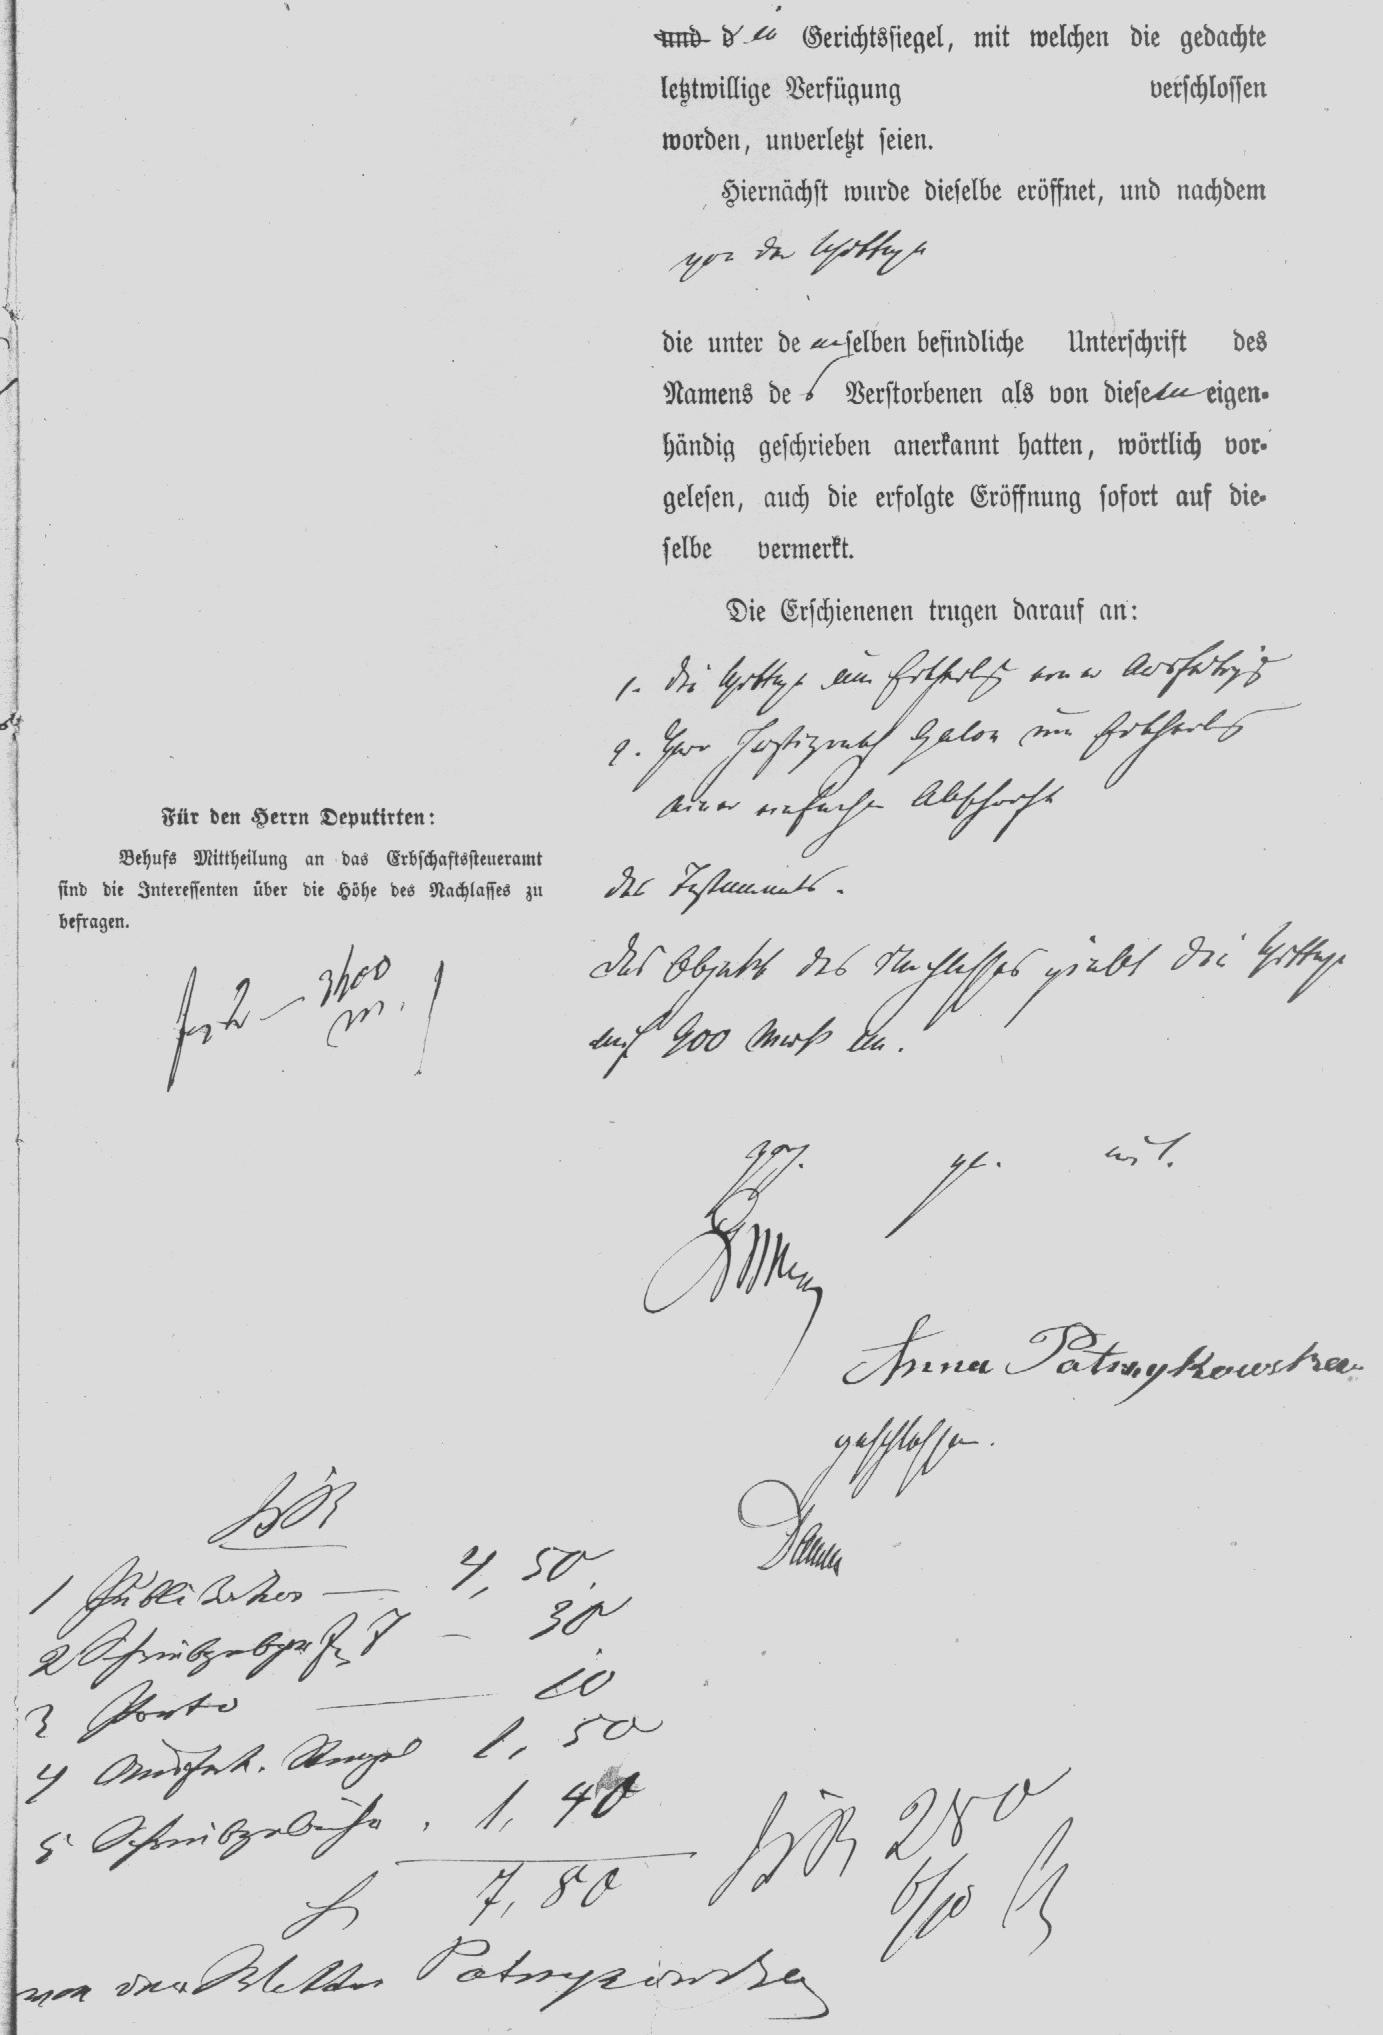 und d ie Gerichtssiegel, mit welchen die gedachte
letztwillige Verfügung verschlossen
worden, unverletzt seien.
Hiernächst wurde dieselbe eröffnet, und nachdem
von der Wittwe
die unter de mselben befindliche Unterschrift des
Namens de s Verstorbenen als von diesem eigen-
händig geschrieben anerkannt hatten, wörtlich vor-
gelesen, auch die erfolgte Eröffnung sofort auf die-
selbe vermerkt.
Die Erschienenen trugen darauf an:
1. die Wittwe um Ertheilg einer Ausfertigg
2. Herr Justizrath Galon um Ertheilg
einer einfachen Abschrift
des Testaments.
Das Objekt des Nachlasses giebt die Wittwe
auf 900 Mark an.
Für den Herrn Deputirten:
Behufs Mittheilung an das Erbschaftssteueramt
sind die Interessenten über die Höhe des Nachlasses zu
befragen.
v. g. u.
Anna Patrzykowska
geschlossen.
Damm
KR
1 Publikation — 4, 50
2 Schreibgebühr 7 — 30
3 Porto — 10
4 Ausfert. Stempel 1, 50
5 Schreibgebühr . 1, 40
7, 80
KR 280
6/10
von der Wittwe Patrzykowska